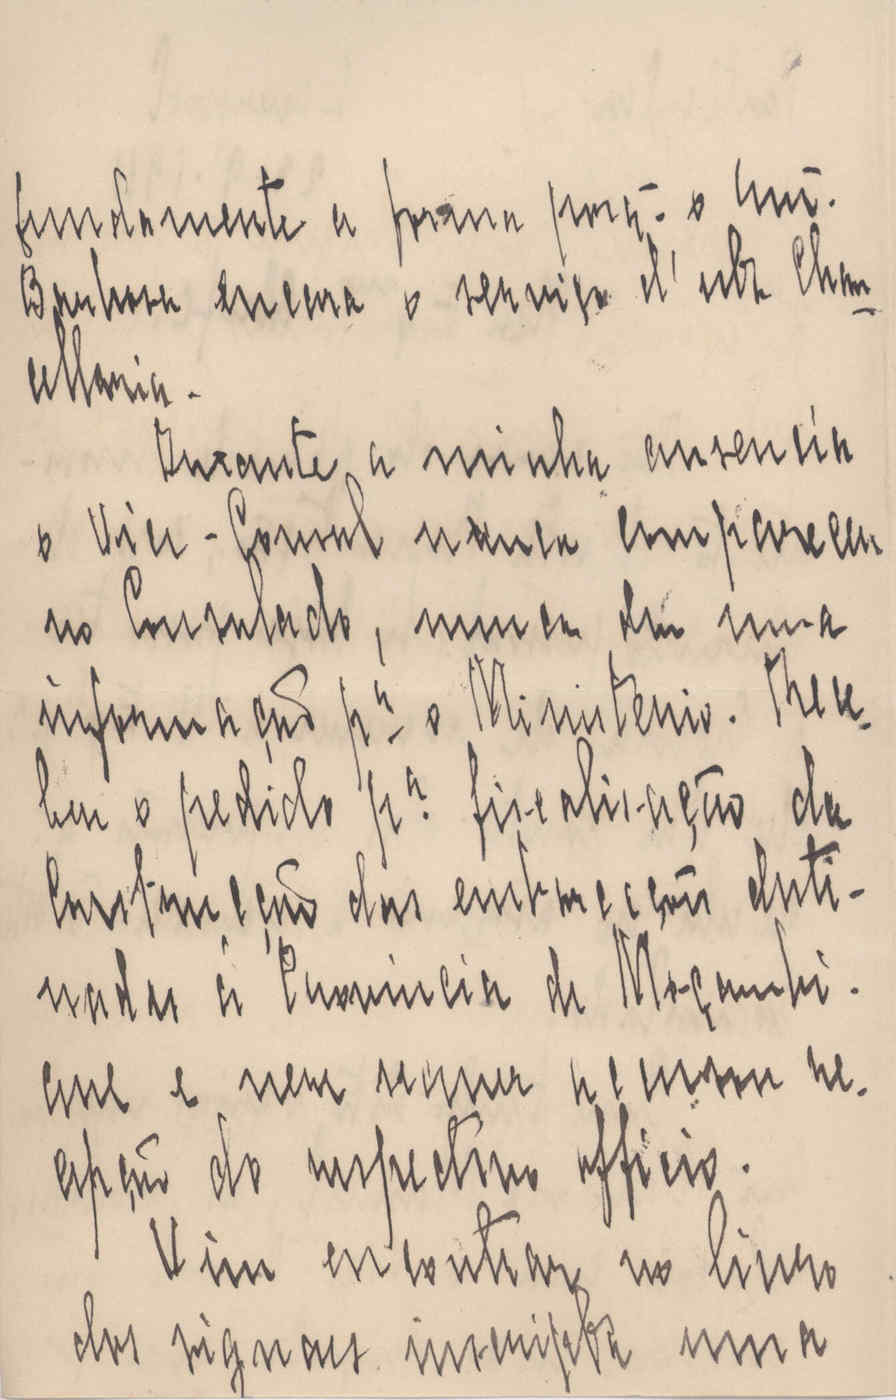 fundamente a forma porq. o Snr.
Barbosa encara o serviço d'esta Chan
cellaria.
Durante a minha ausencia
o Vice-Consul nunca compareceu
no Consulado, nunca deu uma
informação pª o Ministerio. Rece-
beu o pedido pª fiscalisação da
Construcção das embarcações desti-
nadas á Provincia de Moçambi-
que e nem sequer accusou re-
cepção do respectivo officio.
Vim encontrar no livro
dos signaes inscripta uma